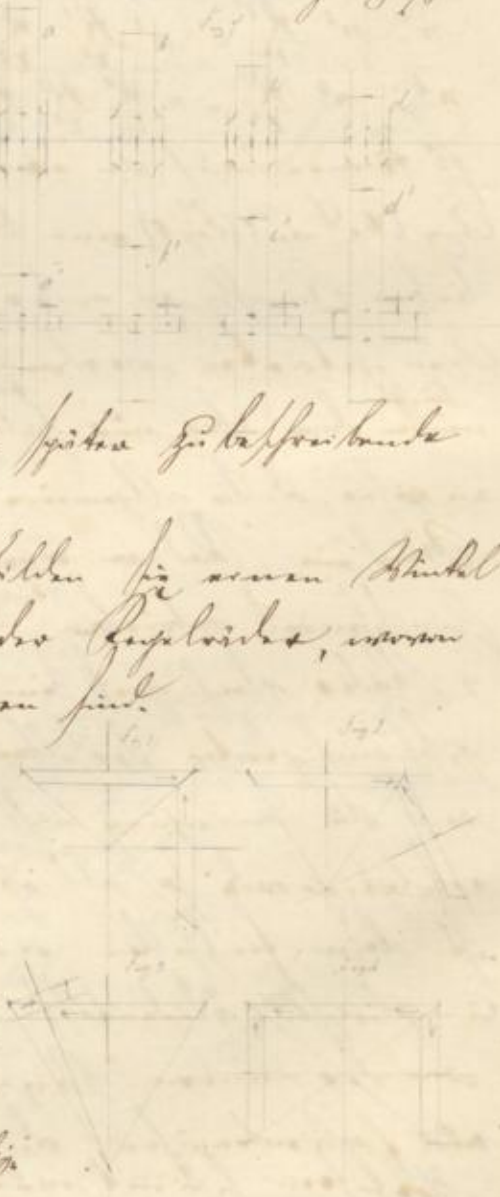 a b
d
b' c' d'
später zu beschreibende
ilden sie einen Winkel
der Kegelräder, wovon
en sind.
Fig 1 Fig 2
Fig 3 Fig 4